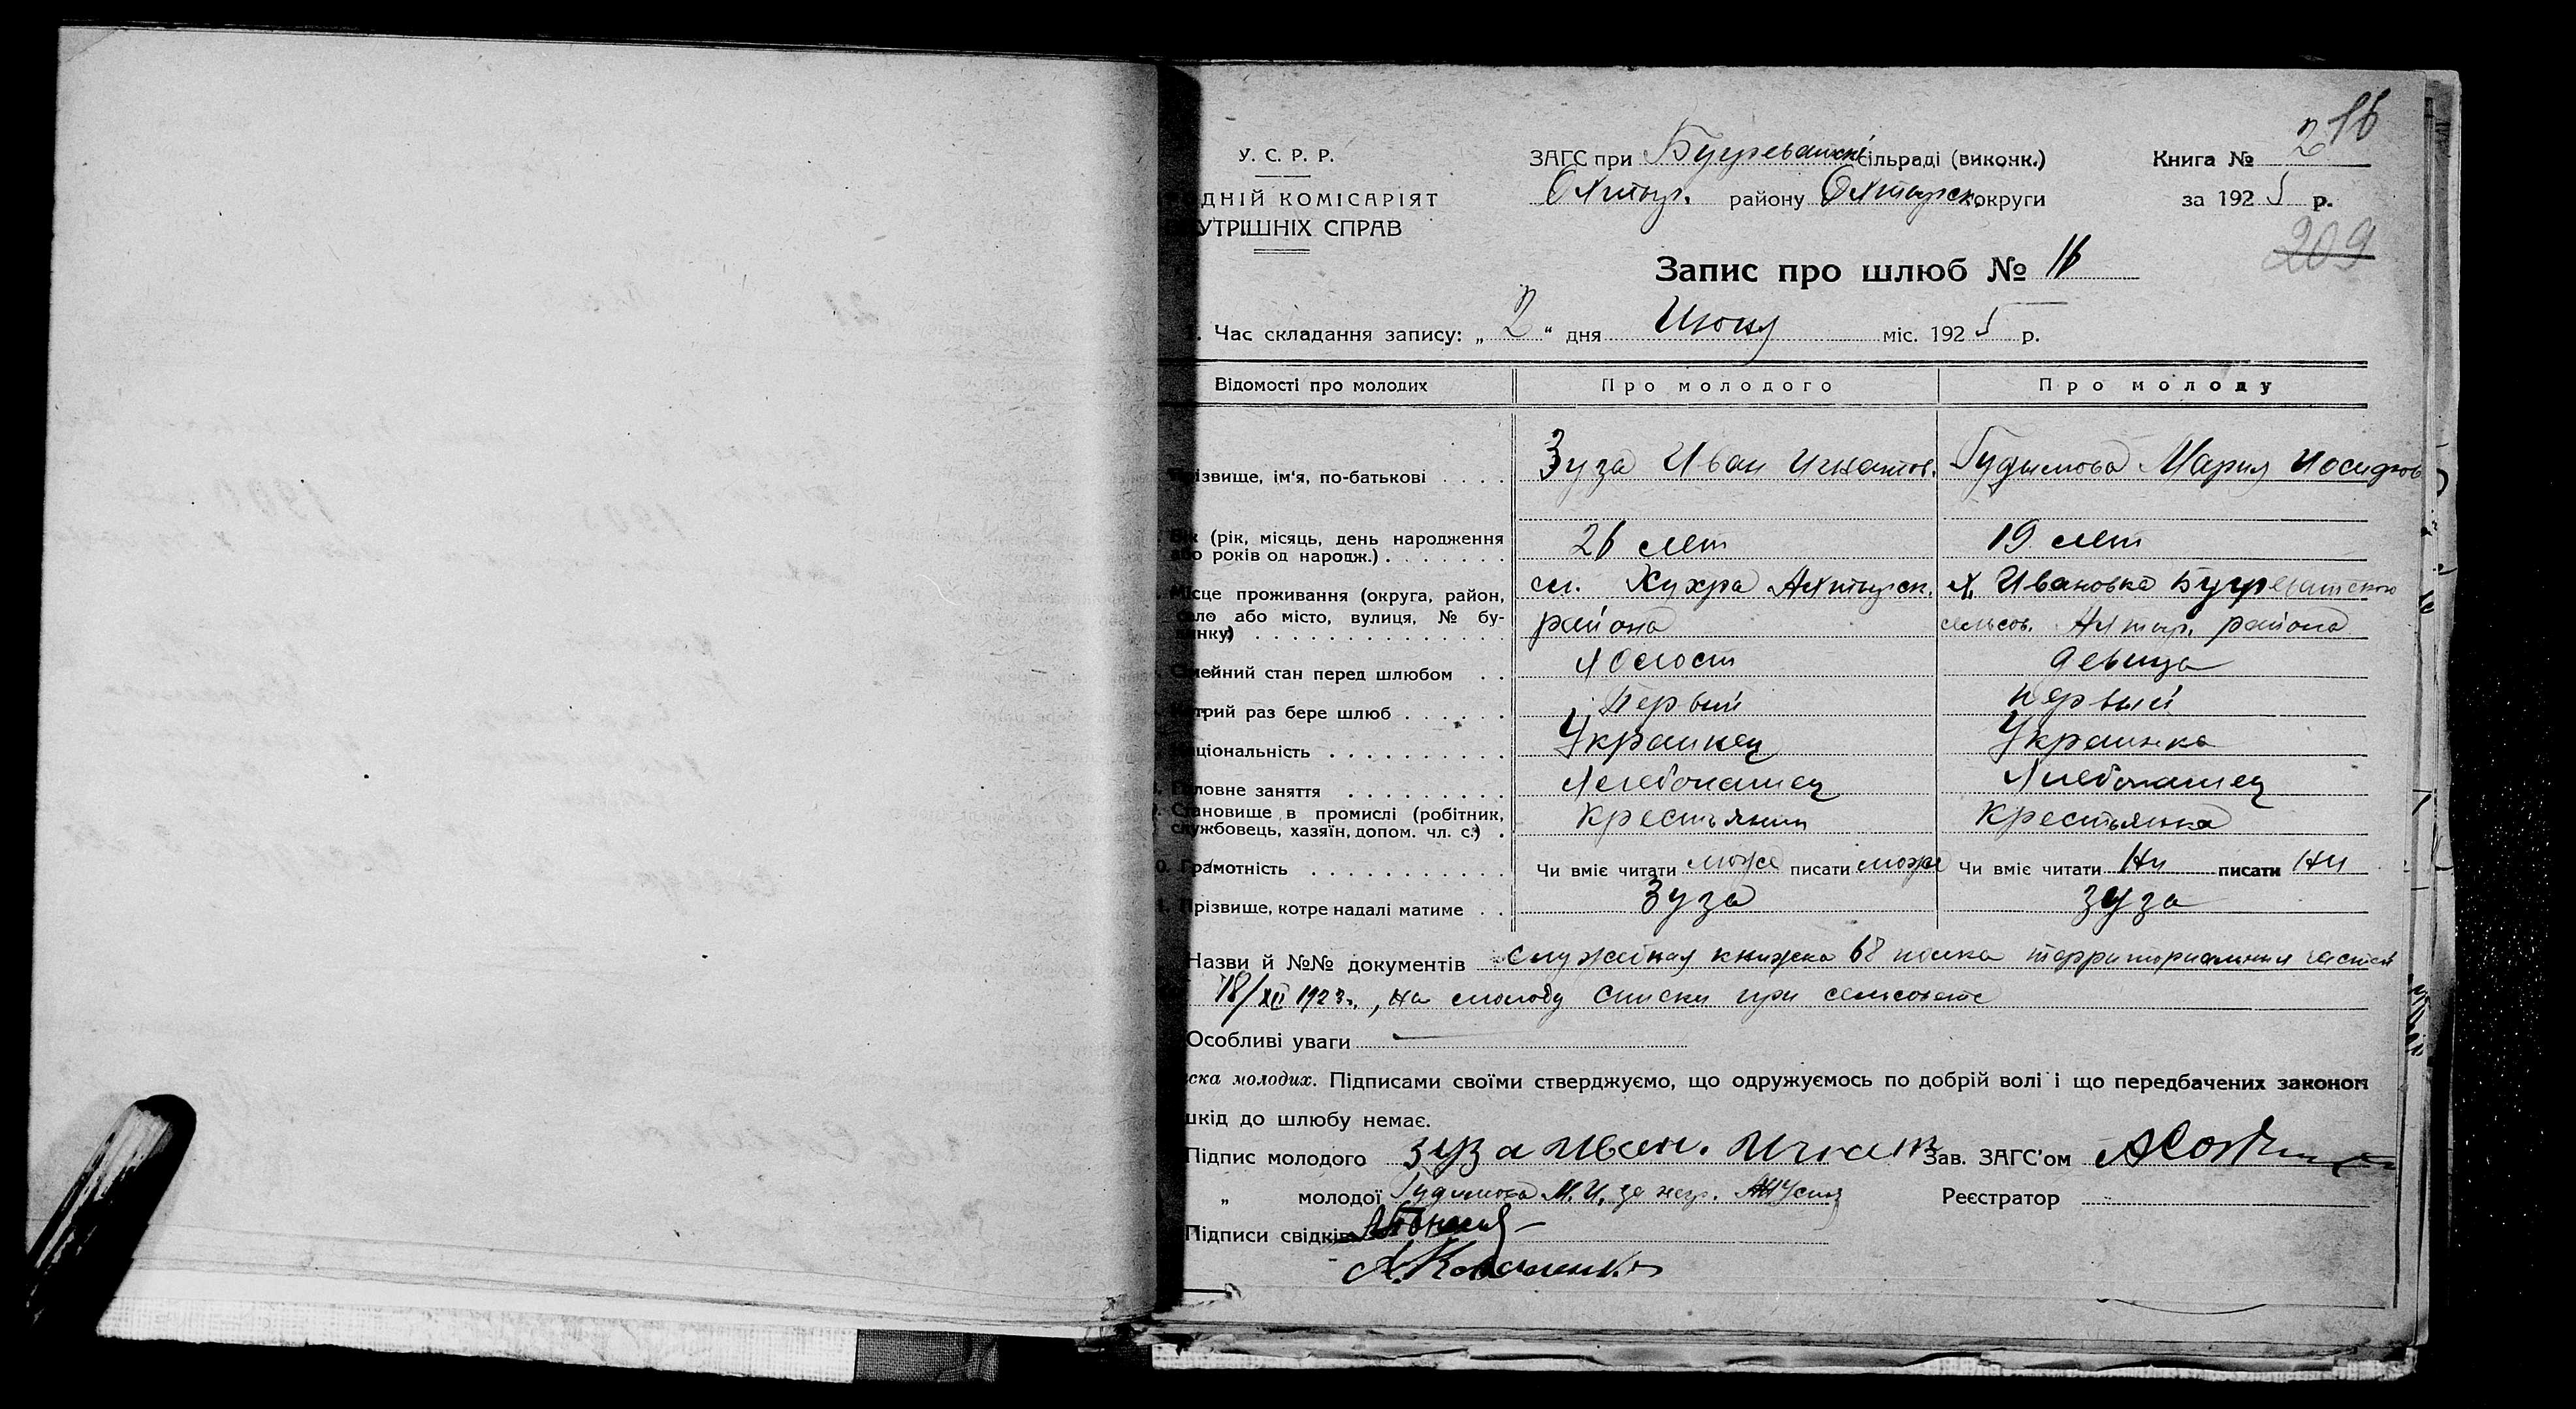 216
У. С. Р. Р.
ЗАГС при Бугреватскі сільраді (виконк.)
Книга № 2
ДНІЙ КОМІСАРІЯТ
Охтыр. району Охтырск. округи
за 1925 р.
УТРІШНІХ СПРАВ
209
Запис про шлюб № 16
Час складання запису: „ 2 " дня Июня міс. 1925 р.
Відомості про молодих
Про молодого
Про молоду
різвище, ім'я, по-батькові
Зуза Иван Игнатов.
Гудимова Мария Иосифов
Вік (рік, місяць, день народження або років од народж.)
26 лет
19 лет
Місце проживання (округа, район, село або місто, вулиця, № будинку)
сл. Кухра Ахтырск. района
х. Ивановка Бугреватского сельсов. Ахтыр. района
Сімейний стан перед шлюбом
холост
девица
трий раз бере шлюб
Первый
первый
Національність
Украинец
Украинка
Головне заняття
Хлебопашец
Хлебопашец
Становище в промислі (робітник, службовець, хазяїн, допом. чл. с.)
Крестьянин
Крестьянка
10. Грамотність
Чи вміє читати може писати може
Чи вміє читати Ни писати Ни
Прізвище, котре надалі матиме
Зуза
Зуза
Назви й №№ документів служебная книжка 68 полка территориальных частей
18/XII 1923 г., на молоду списки при сельсовете
Особливі уваги
ска молодих. Підписами своїми стверджуємо, що одружуємось по добрій волі і що передбачених законом
шкід до шлюбу немає.
Підпис молодого Зуза Иван. Игнат
Зав. ЗАГС'ом
„ молодої Гудимова М. И. за негр.
Реєстратор
Підписи свідків
А. Коваленко